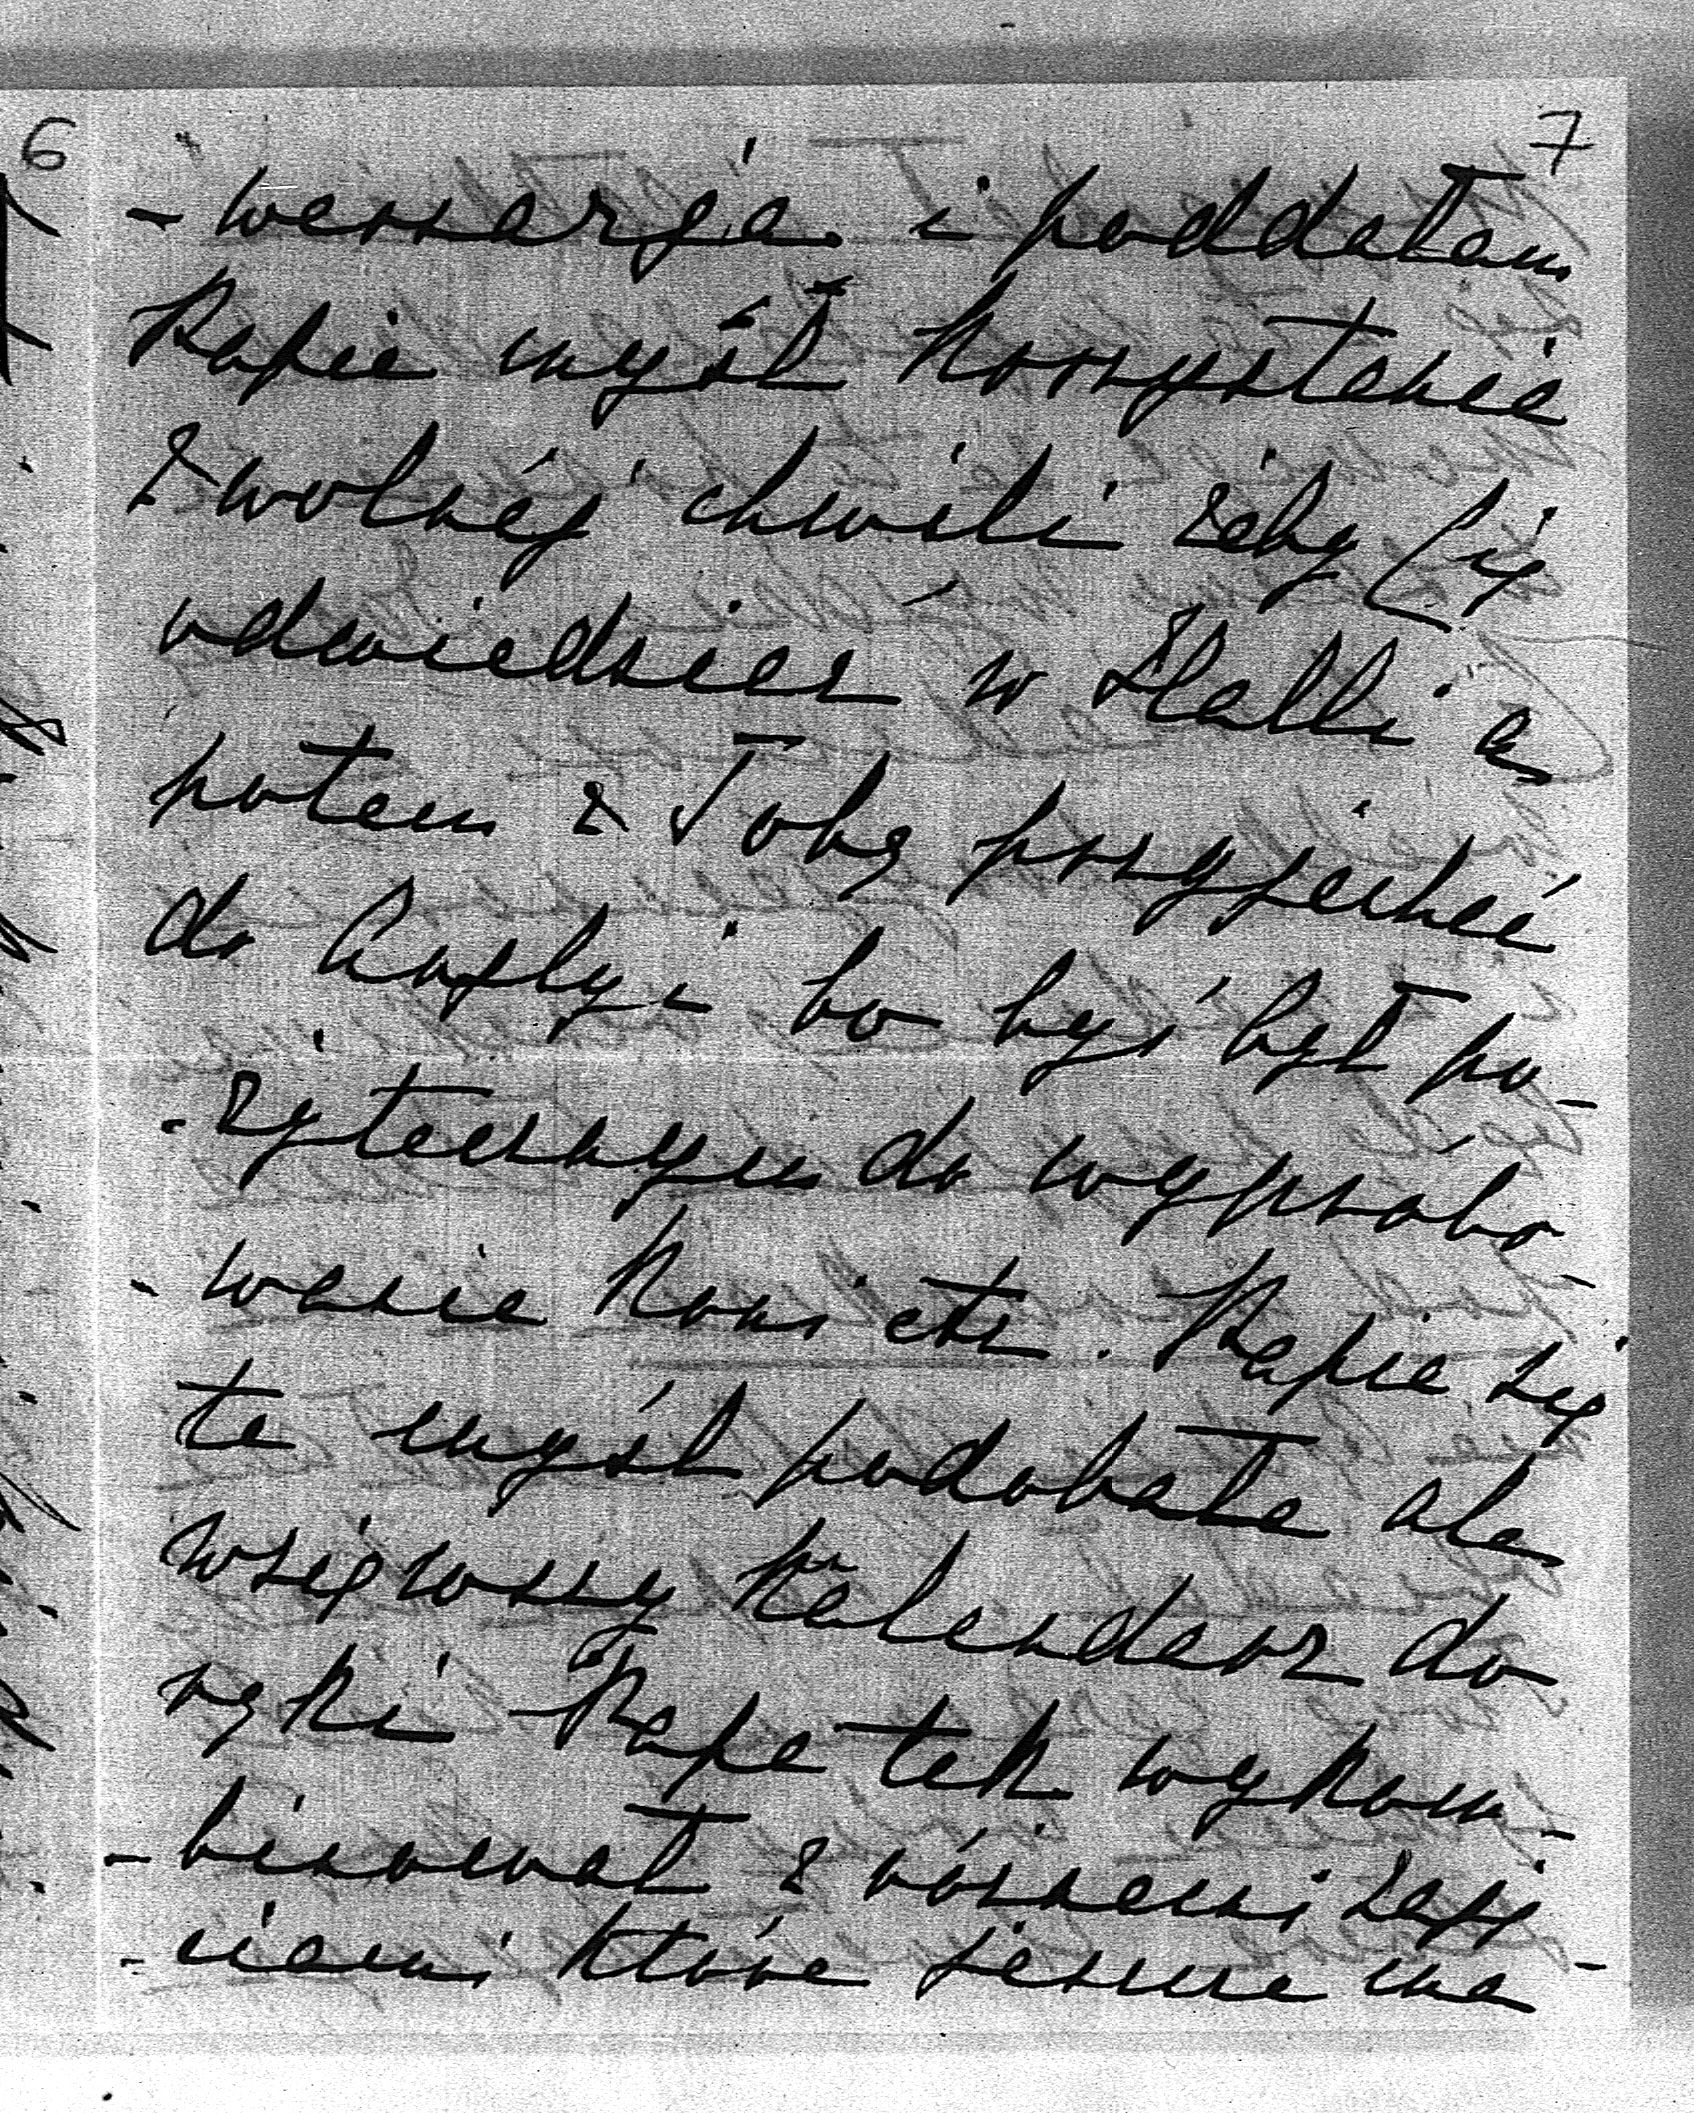 6
7
- wersarja i poddałam
Papie myśl korzystania
z wolnej chwili żeby Cię
odwiedzić w Halli a
potem z Tobą przyjechać
do Goszyc bo byś był po-
- żytecznym do wyprobo-
- wania koni etc. Papie się
ta myśl podobała ale
wziąwszy kalendarz do
ręki Papa tak wykom-
- binował z różnemi zaję-
- ciami które jeszcze ma